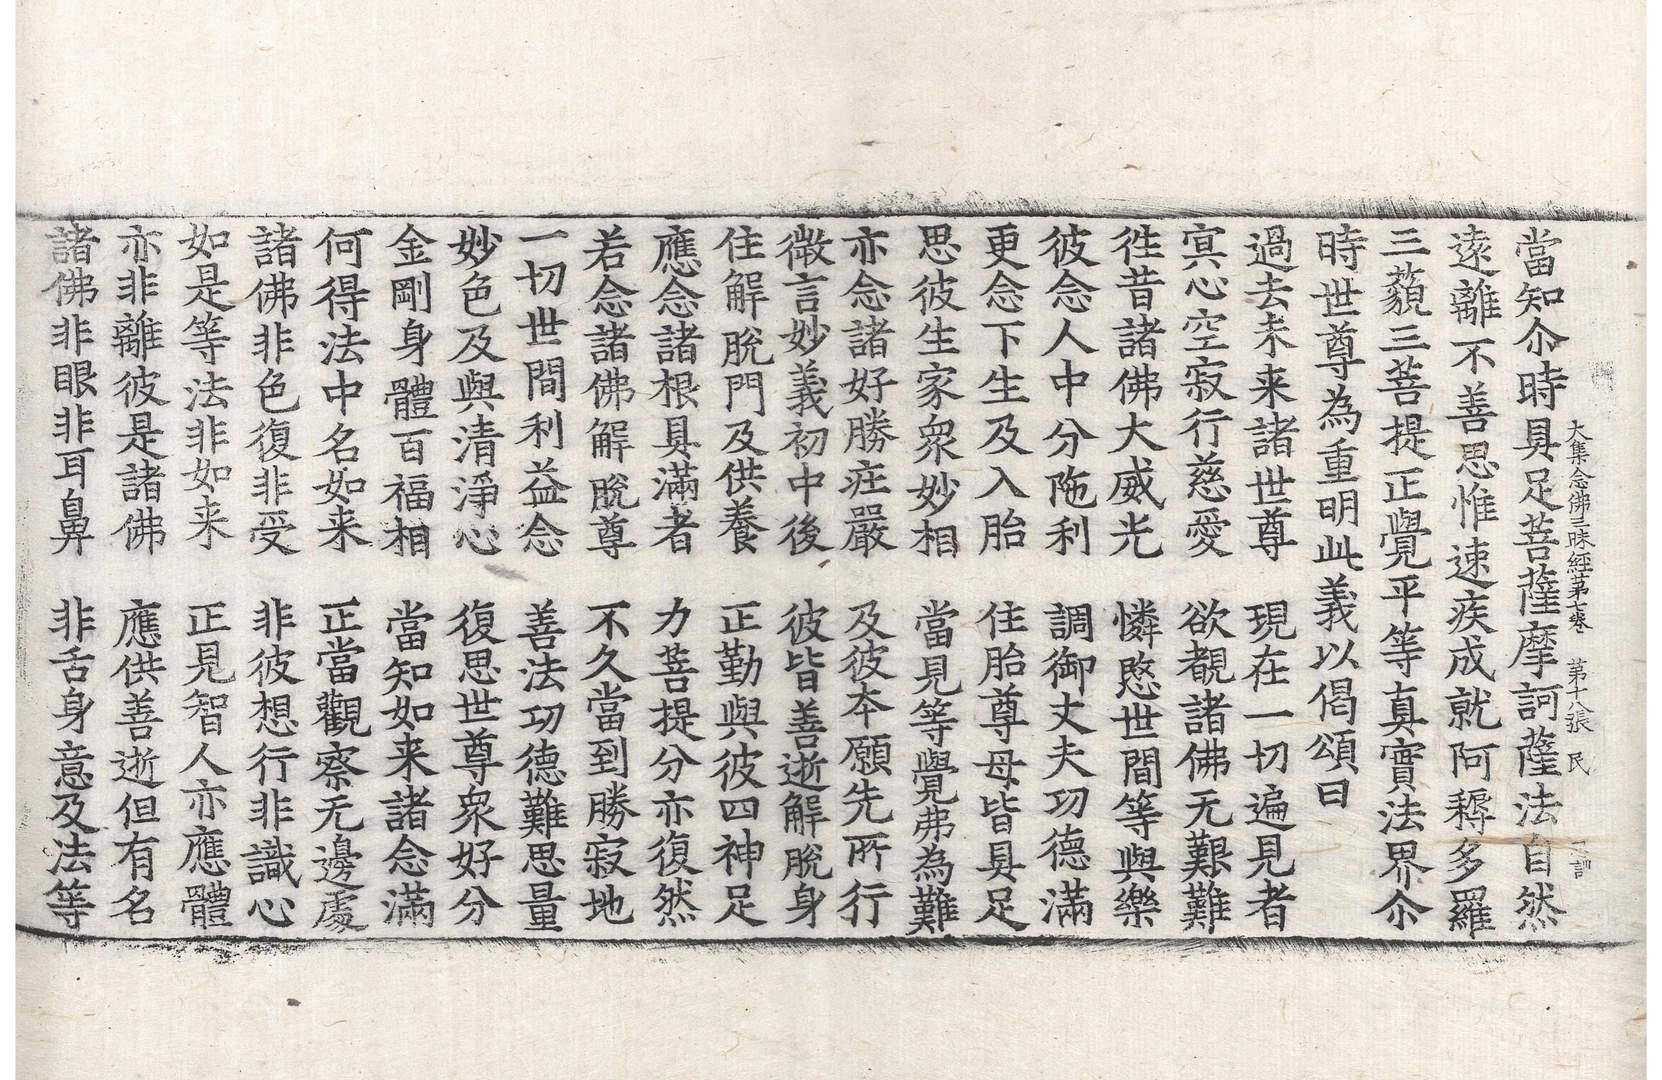 大集念佛三昧經第七卷　第十八張　民
當知尒時具足菩薩摩訶薩法自然
遠離不善思惟速疾成就阿耨多羅
三藐三菩提正覺平等真實法界尒
時世尊為重明此義以偈頌曰
過去未来諸世尊　現在一切遍見者
㝠心空寂行慈愛　欲覩諸佛无艱難
徃昔諸佛大威光　憐愍世間等與樂
彼念人中分陁利　調御丈夫功德滿
更念下生及入胎　住胎尊母皆具足
思彼生家衆妙相　當見等覺弗為難
亦念諸好勝莊嚴　及彼本願先所行
微言妙義初中後　彼皆善逝解脫身
住解脫門及供養　正勤與彼四神足
應念諸根具滿者　力菩提分亦復然
若念諸佛解脫尊　不久當到勝寂地
一切世間利益念　善法功德難思量
妙色及與清淨心　復思世尊衆好分
金剛身體百福相　當知如来諸念滿
何得法中名如来　正當觀察无邊處
諸佛非色復非受　非彼想行非識心
如是等法非如来　正見智人亦應體
亦非離彼是諸佛　應供善逝但有名
諸佛非眼非耳鼻　非舌身意及法等